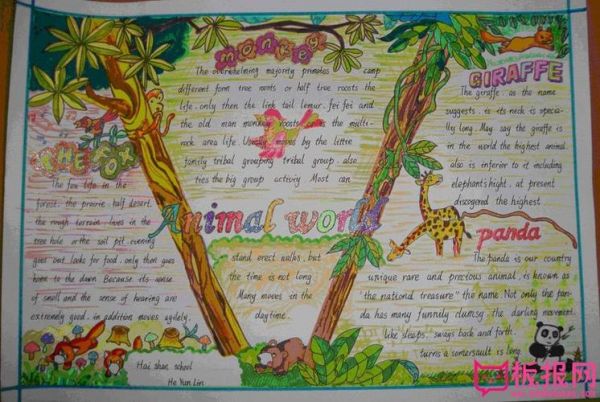 THE FOX
The fox life in the
forest. the prairie. half desert.
the rough terrain. lives in the
tree hole or the soil pit. evening
goes out looks for food. only then goes
home to the dawn Because its sense
of smell and the sense of hearing are
extremely good. in addition moves agilely.
Hai shan school
He Yun Lin
monkey
The overwhelming majority primates camp
different form tree nonts or half tree roosts the
life. only then the link tail lemur. fei fei and
the old man monkey roosts in the multi-
rock area life. Usually moves by the little
family tribal grouping tribal group. also
ties the big group activity Most can
Animal world
stand erect walks. but
the time is not long
Many moves in the
daytime.
GIRAFFE
The giraffe. as the name
suggests. is its neck is specia-
lly long. May say the giraffe is
in the world the highest animal.
also is inferior to it including
elephant's hight. at present
discogered the highest.
panda
The panda is our country
unique rare and precious animal. is known as
"the national treasure" the name. Not only the pan-
da has many funnily clumsg. the darling movement.
like sleeps. swags back and forth.
turns a somersault is long
板报网